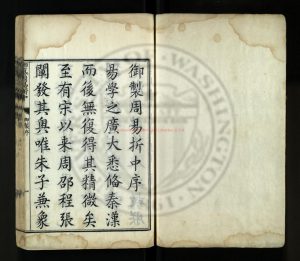 御製周易折中序
易學之廣大悉備秦漢
而後無復得其精微矣
至有宋以来周邵程張
闡發其奥唯朱子兼象
OF WASHINGTON
1861